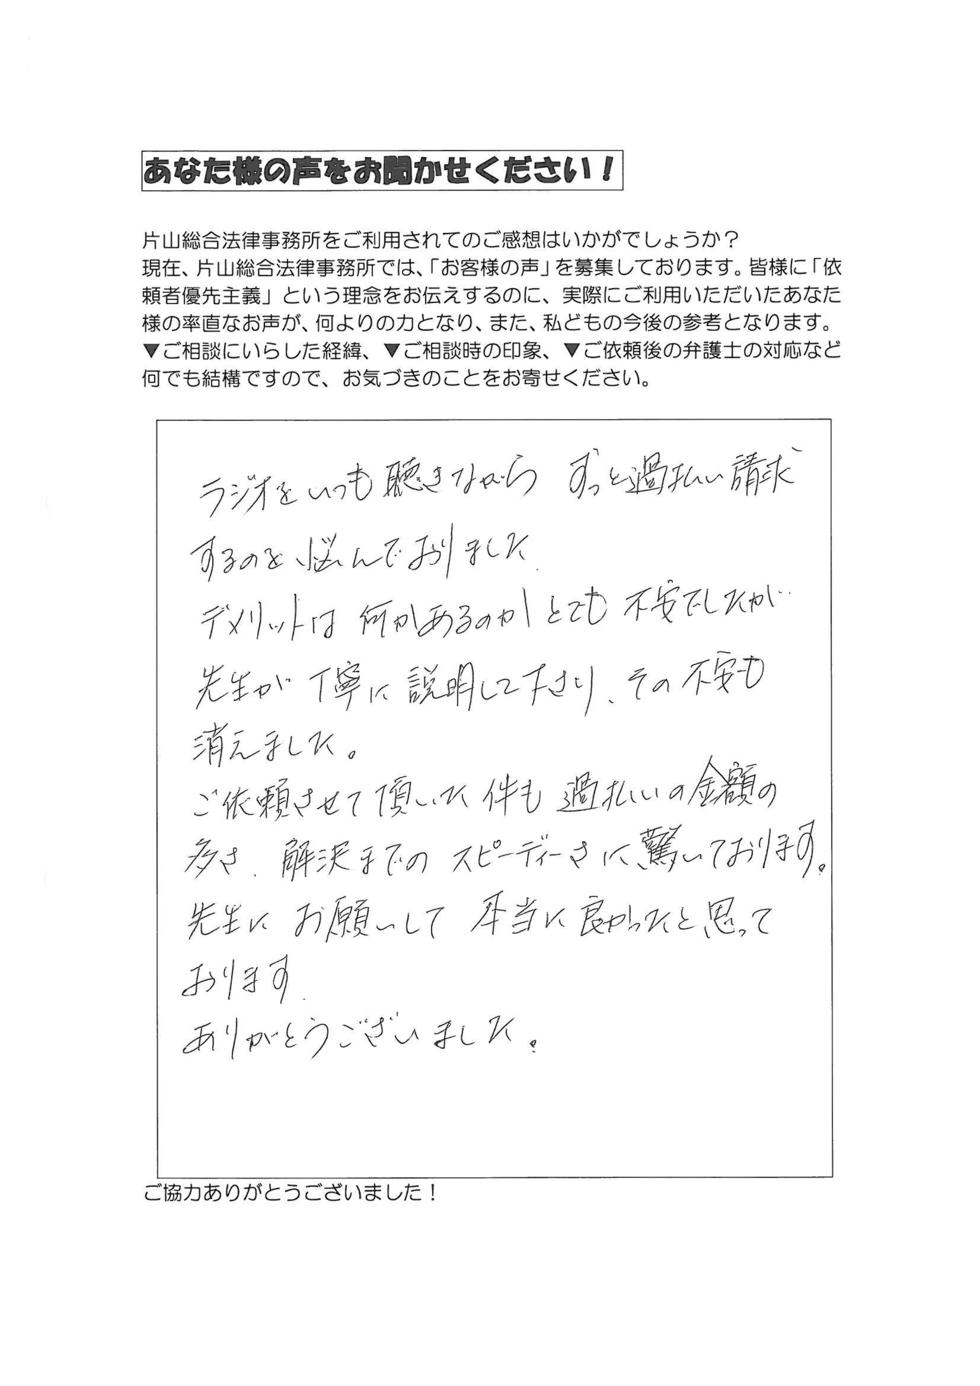 あなた様の声をお聞かせください！
片山総合法律事務所をご利用されてのご感想はいかがでしょうか？
現在、片山総合法律事務所では、「お客様の声」を募集しております。皆様に「依
頼者優先主義」という理念をお伝えするのに、実際にご利用いただいたあなた
様の率直なお声が、何よりの力となり、また、私どもの今後の参考となります。
▼ご相談にいらした経緯、▼ご相談時の印象、▼ご依頼後の弁護士の対応など
何でも結構ですので、お気づきのことをお寄せください。
ラジオをいつも聴きながら ずっと過払い請求
するのを悩んでおりました
デメリットは何かあるのかとても不安でしたが
先生が丁寧に説明して下さり、その不安も
消えました。
ご依頼させて頂いた件も過払いの金額の
多さ、解決までのスピーディーさに驚いております。
先生にお願いして本当に良かったと思って
おります
ありがとうございました。
ご協力ありがとうございました！